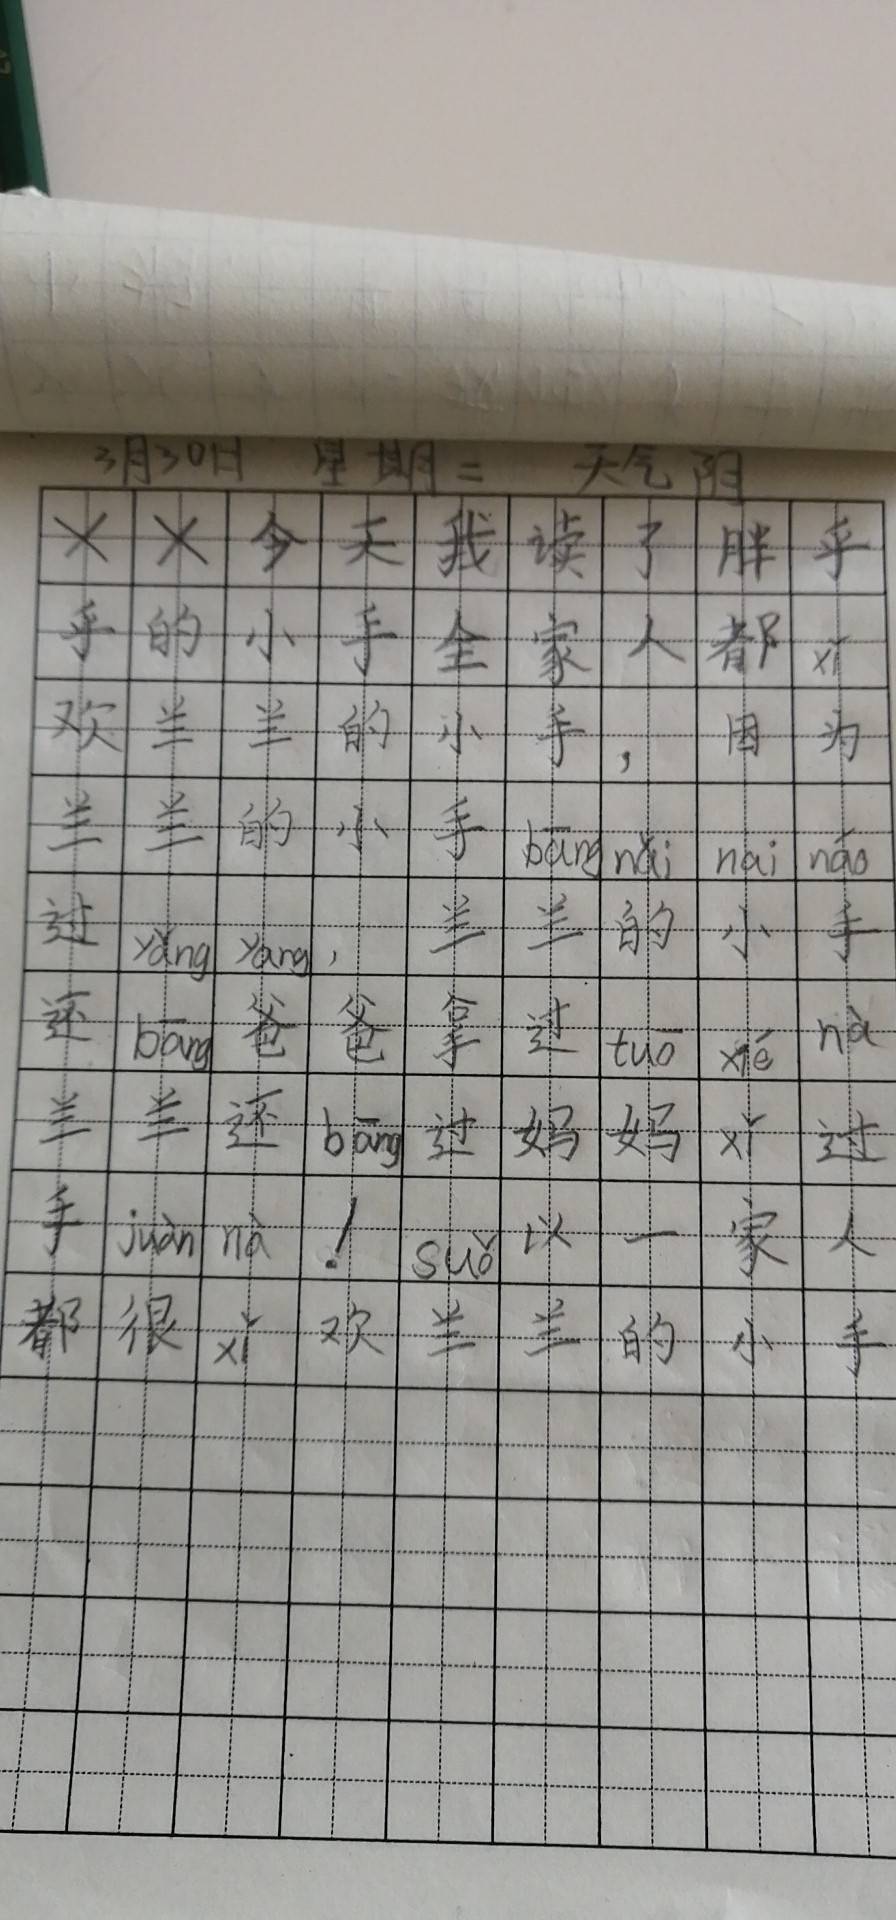 3月30日 星期二 天气阴
××今天我读了胖乎
乎的小手全家人都xǐ
欢兰兰的小手，因为
兰兰的小手bāng nǎi nai náo
过yǎng yang，兰兰的小手
还bāng爸爸拿过tuō xié nà
兰兰还bāng过妈妈xǐ过
手juàn nà！suǒ以一家人
都很xǐ欢兰兰的小手